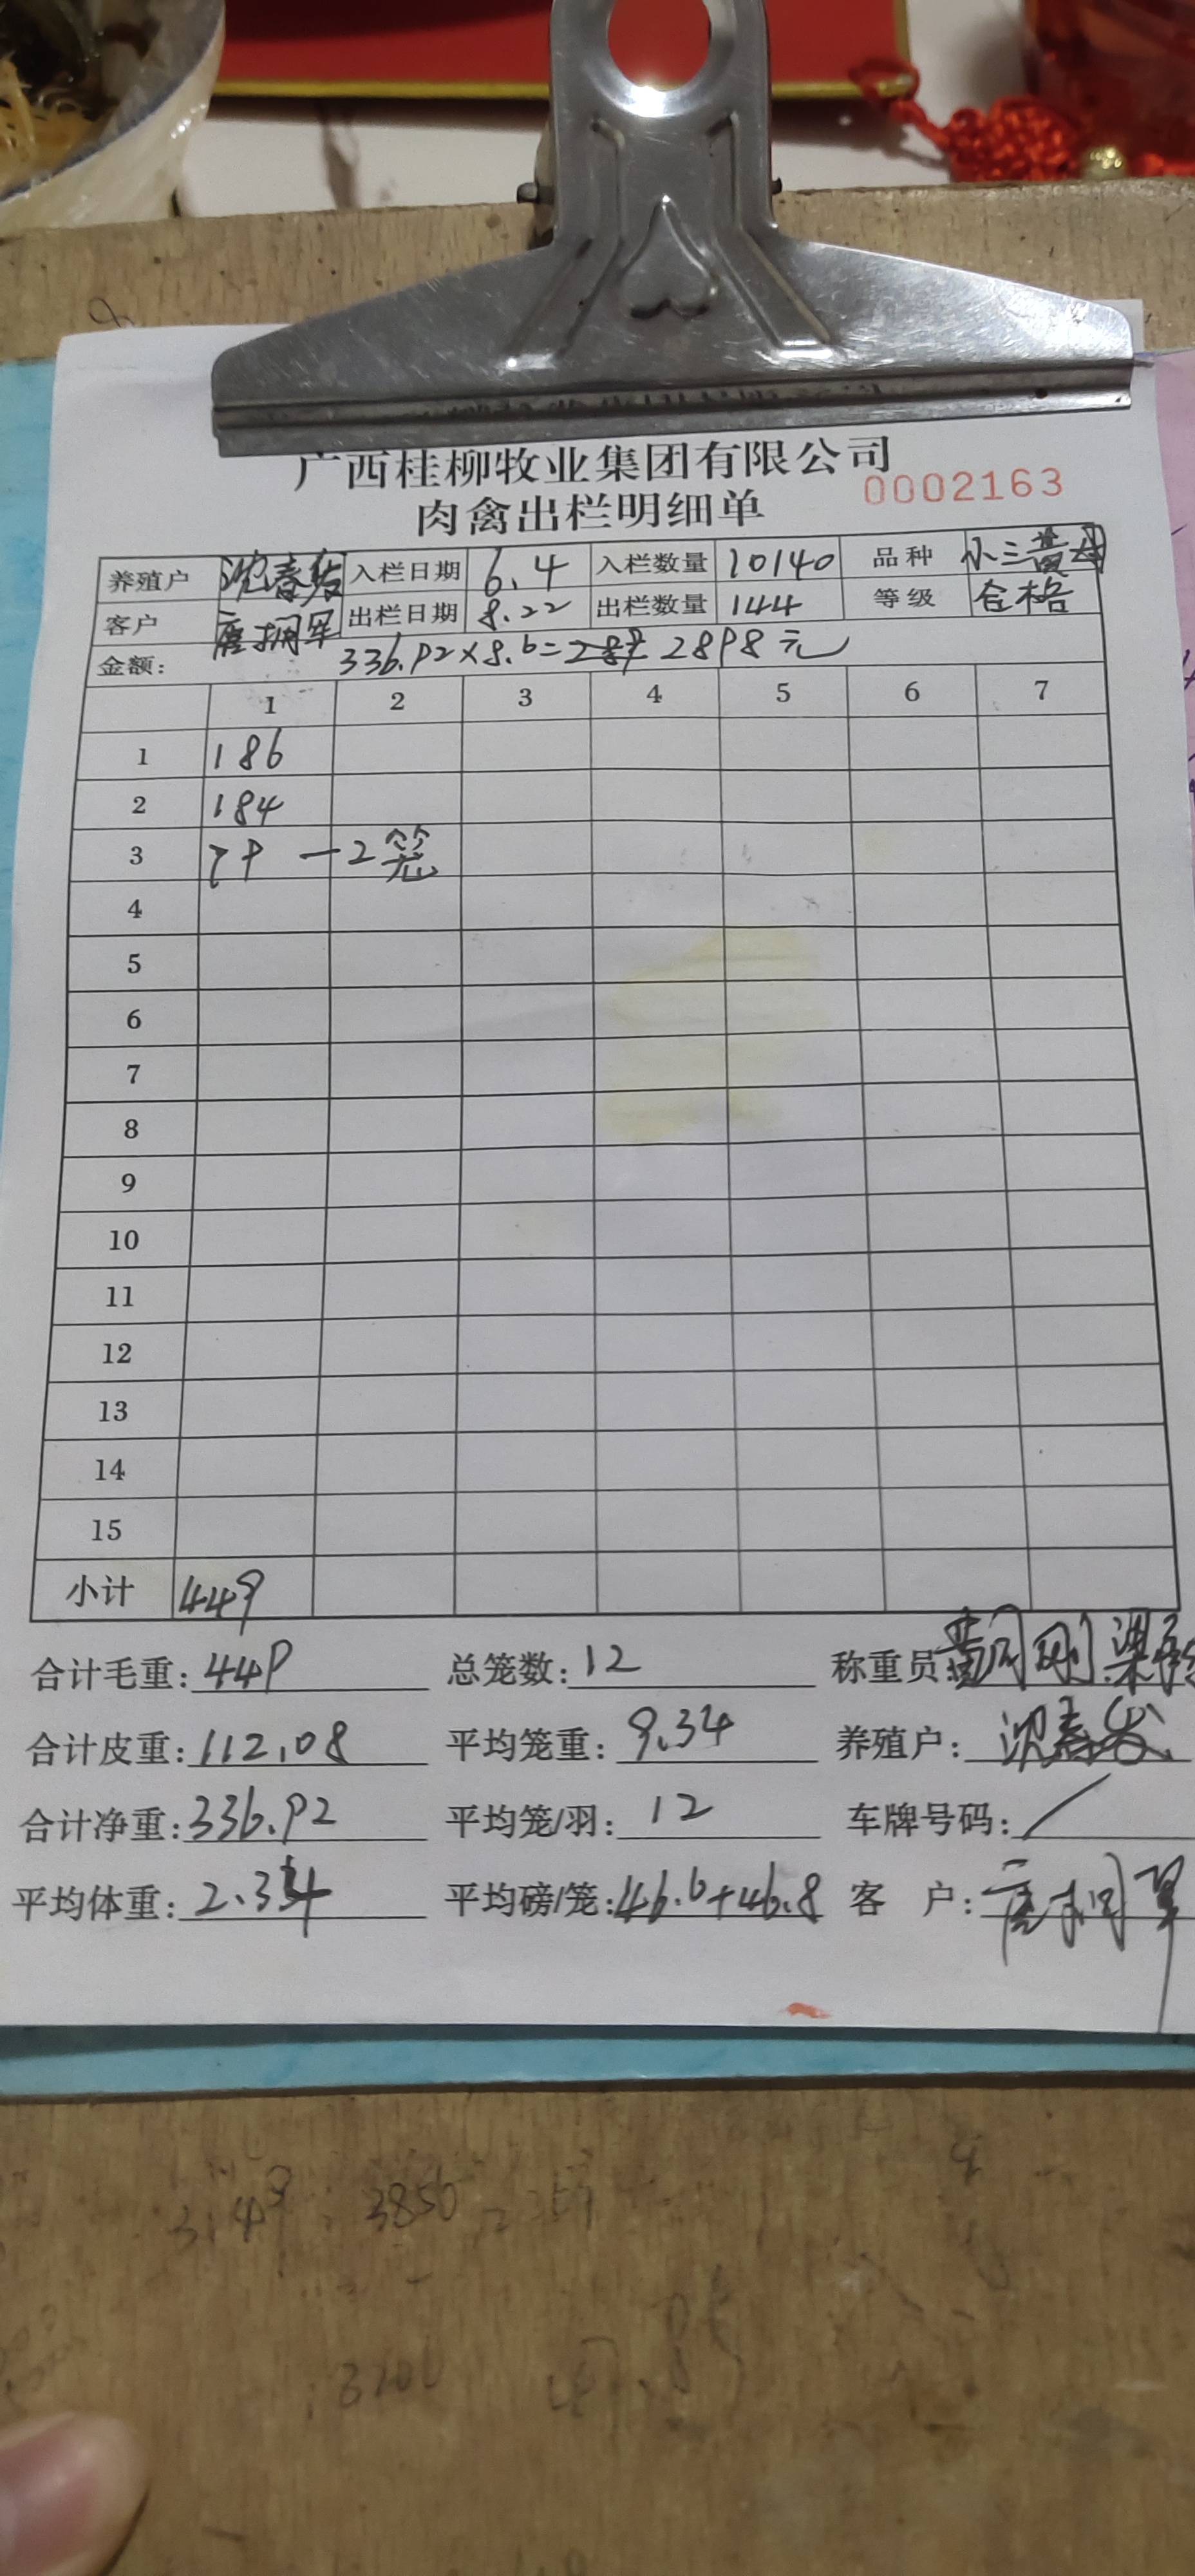 广西桂柳牧业集团有限公司
肉禽出栏明细单 0002163
养殖户 沈春发 入栏日期 6.4 入栏数量 10140 品种 小三黄母
客户 唐拥军 出栏日期 8.22 出栏数量 144 等级 合格
金额: 336.92×8.6= 2898元
1 2 3 4 5 6 7
1 186
2 184
3 79 —2笼
4
5
6
7
8
9
10
11
12
13
14
15
小计 449
合计毛重: 449 总笼数: 12 称重员
合计皮重: 112.08 平均笼重: 9.34 养殖户: 沈春发
合计净重: 336.92 平均笼/羽: 12 车牌号码: /
平均体重: 2.34 平均磅/笼: 46.6+46.8 客 户: 唐拥军
3200